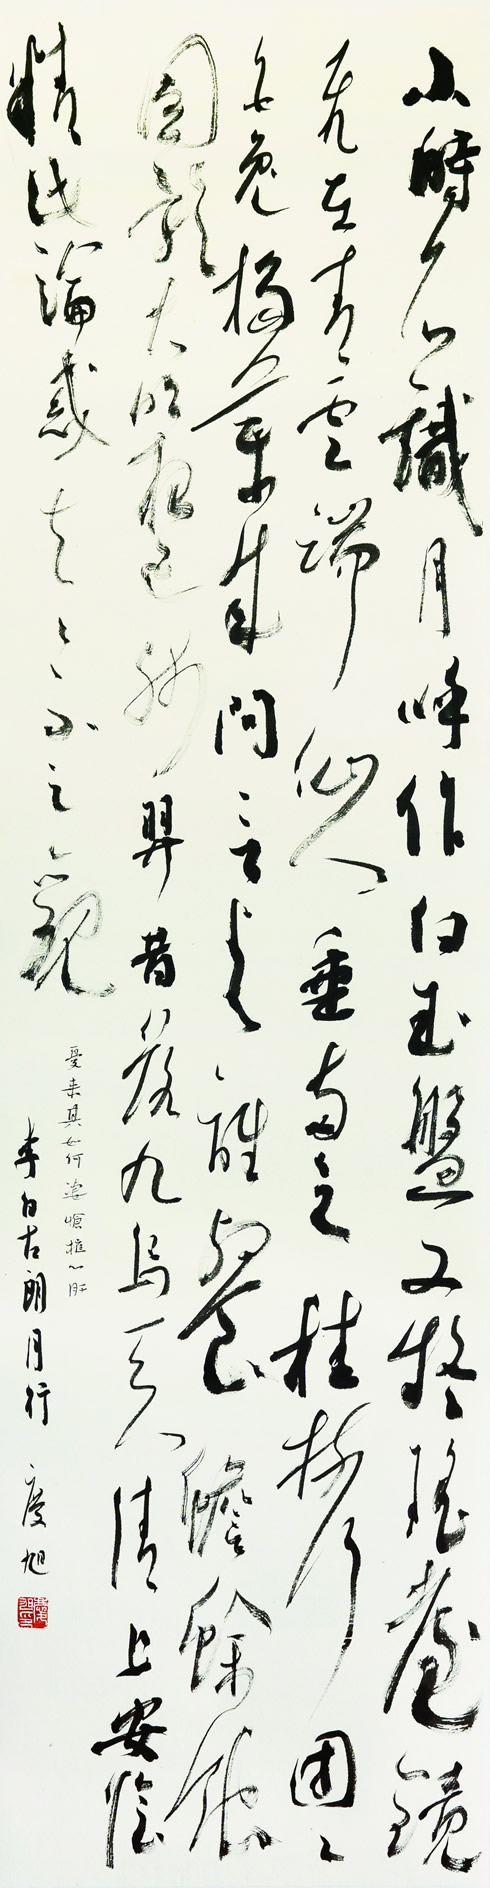 小時不識月呼作白玉盤又疑瑤臺鏡
飛在青雲端仙人垂兩足桂樹何団々
白兔搗藥成問言与誰餐蟾蜍蝕
圓影大明夜已殘羿昔落九烏天人清且安陰
精此淪惑去々不足觀
憂来其如何悽愴摧心肝
李白古朗月行 慶旭